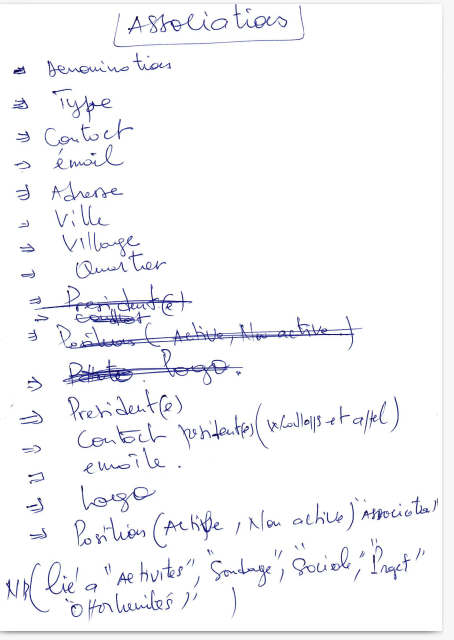 Association
- Denomination
⇒ Type
⇒ Contact
→ émail
⇒ Adresse
→ Ville
⇒ Village
→ Quartier
⇒ President(e)
→ contact
⇒ Position ( Active, Non active.)
⇒ Photo. logo.
⇒ President(e)
⇒ Contact president(e) ( et appel)
= emaile.
⇒ Logo
⇒ Position (Active, Non active) "Association"
NB( lié a "Activites", "Sondage", "Sociale", "Projet"
"Opportunités", )